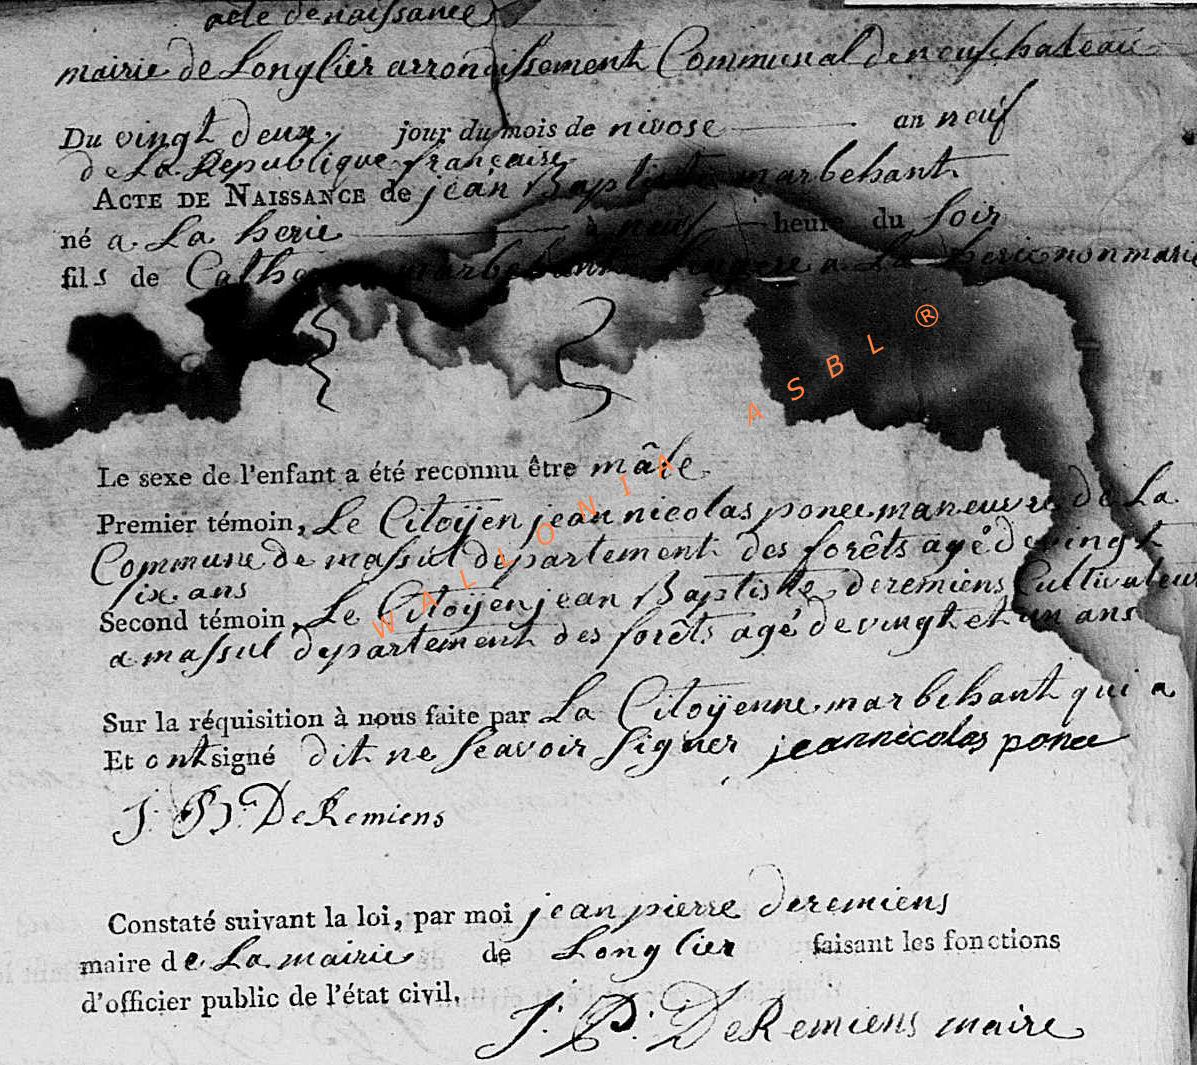 acte de naissance
mairie de Longlier arrondissement Communal de neufchateau
Du vingt deux jour du mois de nivose an neuf
de La Republique française
ACTE DE NAISSANCE de jean Baptiste marbehant
né a La herie à neuf heure du soir
fils de Catherine marbehant a La herie non marié
Le sexe de l'enfant a été reconnu être mâle
Premier témoin, Le Citoÿen jean nicolas ponce maneuvre de La
Commune de massul département des forêts agé de vingt
six ans
Second témoin, Le Citoÿen jean Baptiste deremiens Cultivateur
a massul departement des forêts agé de vingt et un ans
Sur la réquisition à nous faite par La Citoÿenne marbehant qui a
Et ont signé dit ne scavoir signer jean nicolas ponce
J: B: DeRemiens
Constaté suivant la loi, par moi jean pierre deremiens
maire de La mairie de Longlier faisant les fonctions
d'officier public de l'état civil.
J: P: DeRemiens maire
WALLONIA ASBL ®